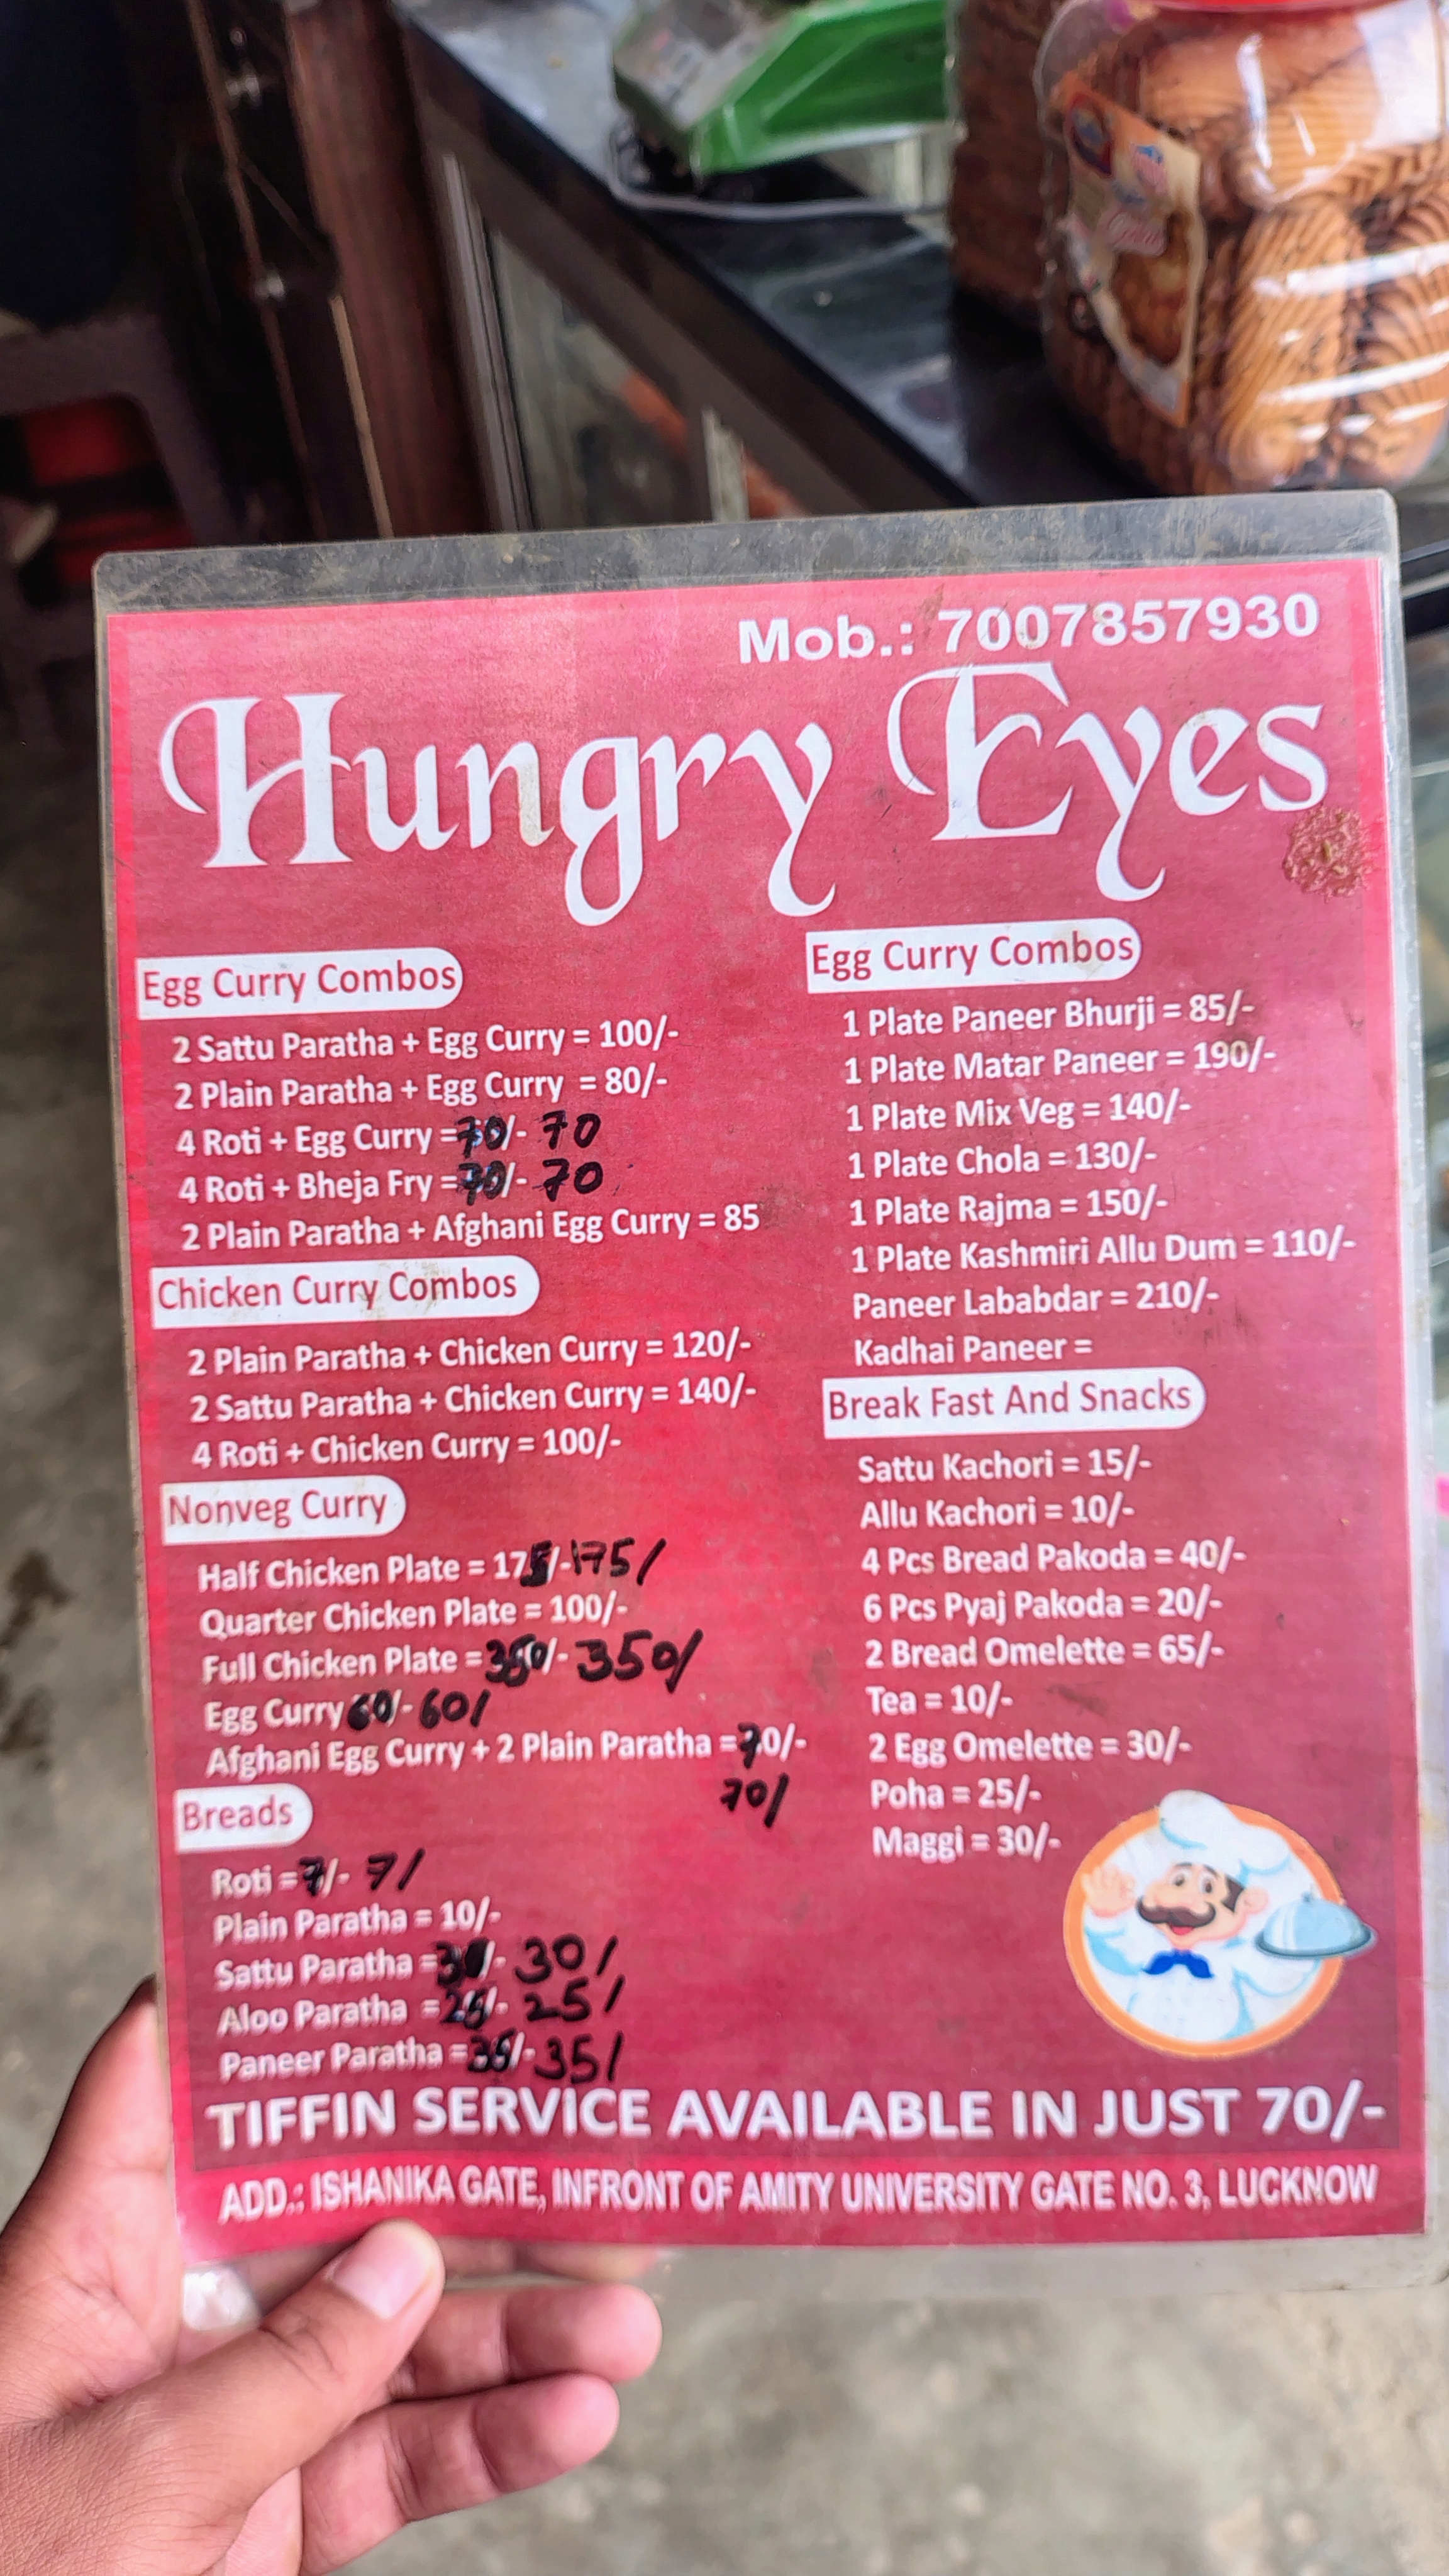 Mob.: 7007857930
Hungry Eyes
Egg Curry Combos
2 Sattu Paratha + Egg Curry = 100/-
2 Plain Paratha + Egg Curry = 80/-
4 Roti + Egg Curry =70/- 70
4 Roti + Bheja Fry =70/- 70
2 Plain Paratha + Afghani Egg Curry = 85
Chicken Curry Combos
2 Plain Paratha + Chicken Curry = 120/-
2 Sattu Paratha + Chicken Curry = 140/-
4 Roti + Chicken Curry = 100/-
Nonveg Curry
Half Chicken Plate = 175/- 175/
Quarter Chicken Plate = 100/-
Full Chicken Plate =350/- 350/
Egg Curry 60/- 60/
Afghani Egg Curry + 2 Plain Paratha =70/-
70/
Breads
Roti =7/- 7/
Plain Paratha = 10/-
Sattu Paratha =30/- 30/
Aloo Paratha =25/- 25/
Paneer Paratha =35/- 35/
Egg Curry Combos
1 Plate Paneer Bhurji = 85/-
1 Plate Matar Paneer = 190/-
1 Plate Mix Veg = 140/-
1 Plate Chola = 130/-
1 Plate Rajma = 150/-
1 Plate Kashmiri Allu Dum = 110/-
Paneer Lababdar = 210/-
Kadhai Paneer =
Break Fast And Snacks
Sattu Kachori = 15/-
Allu Kachori = 10/-
4 Pcs Bread Pakoda = 40/-
6 Pcs Pyaj Pakoda = 20/-
2 Bread Omelette = 65/-
Tea = 10/-
2 Egg Omelette = 30/-
Poha = 25/-
Maggi = 30/-
TIFFIN SERVICE AVAILABLE IN JUST 70/-
ADD.: ISHANIKA GATE, INFRONT OF AMITY UNIVERSITY GATE NO. 3, LUCKNOW